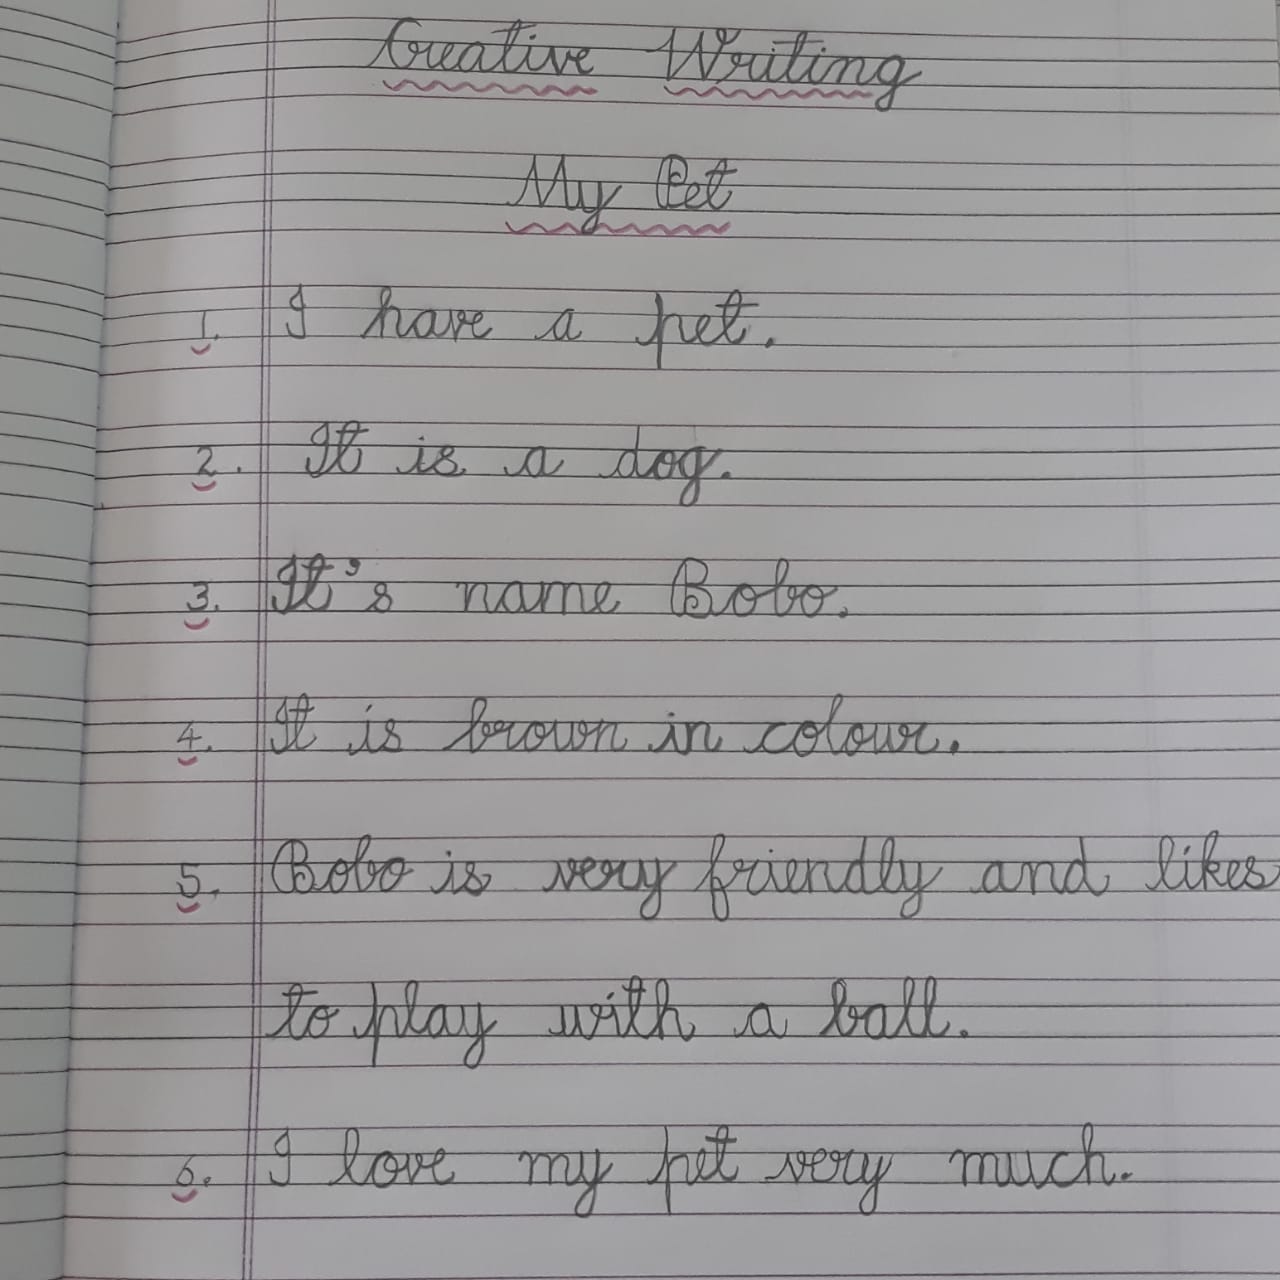 Creative Writing
My Pet
1. I have a pet.
2. It is a dog.
3. It's name Bobo.
4. It is brown in colour.
5. Bobo is very friendly and likes
to play with a ball.
6. I love my pet very much.